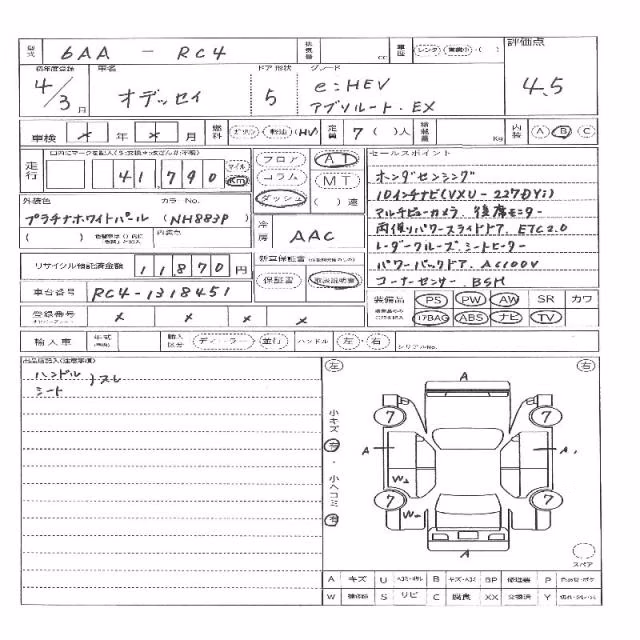 型式 6AA - RC4 排気量 cc 車歴 レンタ・実験中・( ) 評価点
初年度登録 車名 ドア形状 グレード
4/3月 オデッセイ 5 e:HEV アブソルート・EX 4.5
車検 * 年 * 月 燃料 ガソリン 軽油 (HV) 定員 7 ( )人 積載量 Kg 内装 A B C
走行 41,790 マイル Km
フロア AT
コラム MT
ダッシュ ( )速
セールスポイント
ホンダセンシング
10インチナビ(VXU-227DYi)
マルチビューカメラ 後席モニター
両側パワースライドドア ETC2.0
レーダークルーズ シートヒーター
パワーバックドア AC100V
コーナーセンサー BSM
外装色 カラーNo.
プラチナホワイトパール (NH883P)
( ) 内装色
冷房 AAC
リサイクル預託済金額 11870円
新車保証書
保証書 取扱説明書
車台番号 RC4-1318451
装備品 PS PW AW SR カワ
エアBAG ABS ナビ TV
登録番号 * * * *
輸入車 年式 輸入区分 ディーラー・並行 ハンドル 左・右 シリアルNo.
ハンドル
シート スレ
左 右
小キズ 有・小ヘコミ 有
A
7 7
A A1
W2
7 7
W2
A
スペア
A キズ U B キズ・ヘコミ BP 修理跡 P
W 補修跡 S サビ C 腐食 XX 交換済 Y